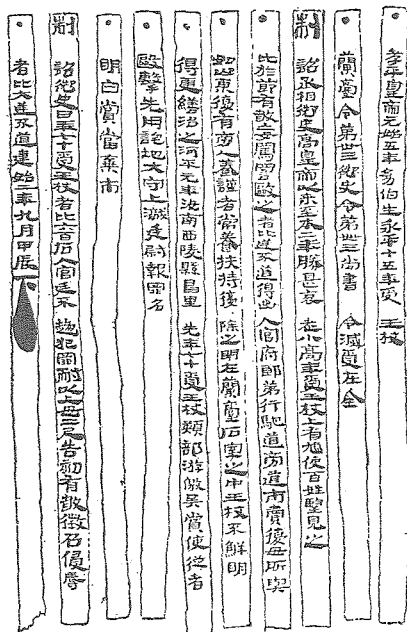 孝平皇帝元始五年幼伯生永平十五年受 王杖
蘭臺令第卅三御史令第卌三尚書 令滅受在金
制 詔丞相御史高皇帝以來至本二年勝甚哀 老小高年受王杖上有鳩使百姓望見之
比於節有敢妄罵詈毆之者比逆不道得出 入官府郎第行馳道旁道市賣復毋所與
如山東復有旁人養謹者常養扶持復 除之明在蘭臺石室之中王杖不鮮明
得更繕治之河平元年汝南西陵縣昌里 先年七十受王杖類部游徼吳賞使從者
毆擊先用詫地大守上讞廷尉報罪名
明白賞當棄市
制 詔御史曰年七十受王杖者比六百石入官廷不 趨犯罪耐以上毋二尺告劾有敢徵召侵辱
者比大逆不道建始二年九月甲辰下